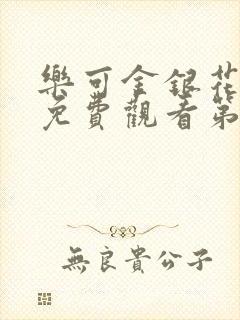 樂可金銀花
免費觀看第
無良貴公子